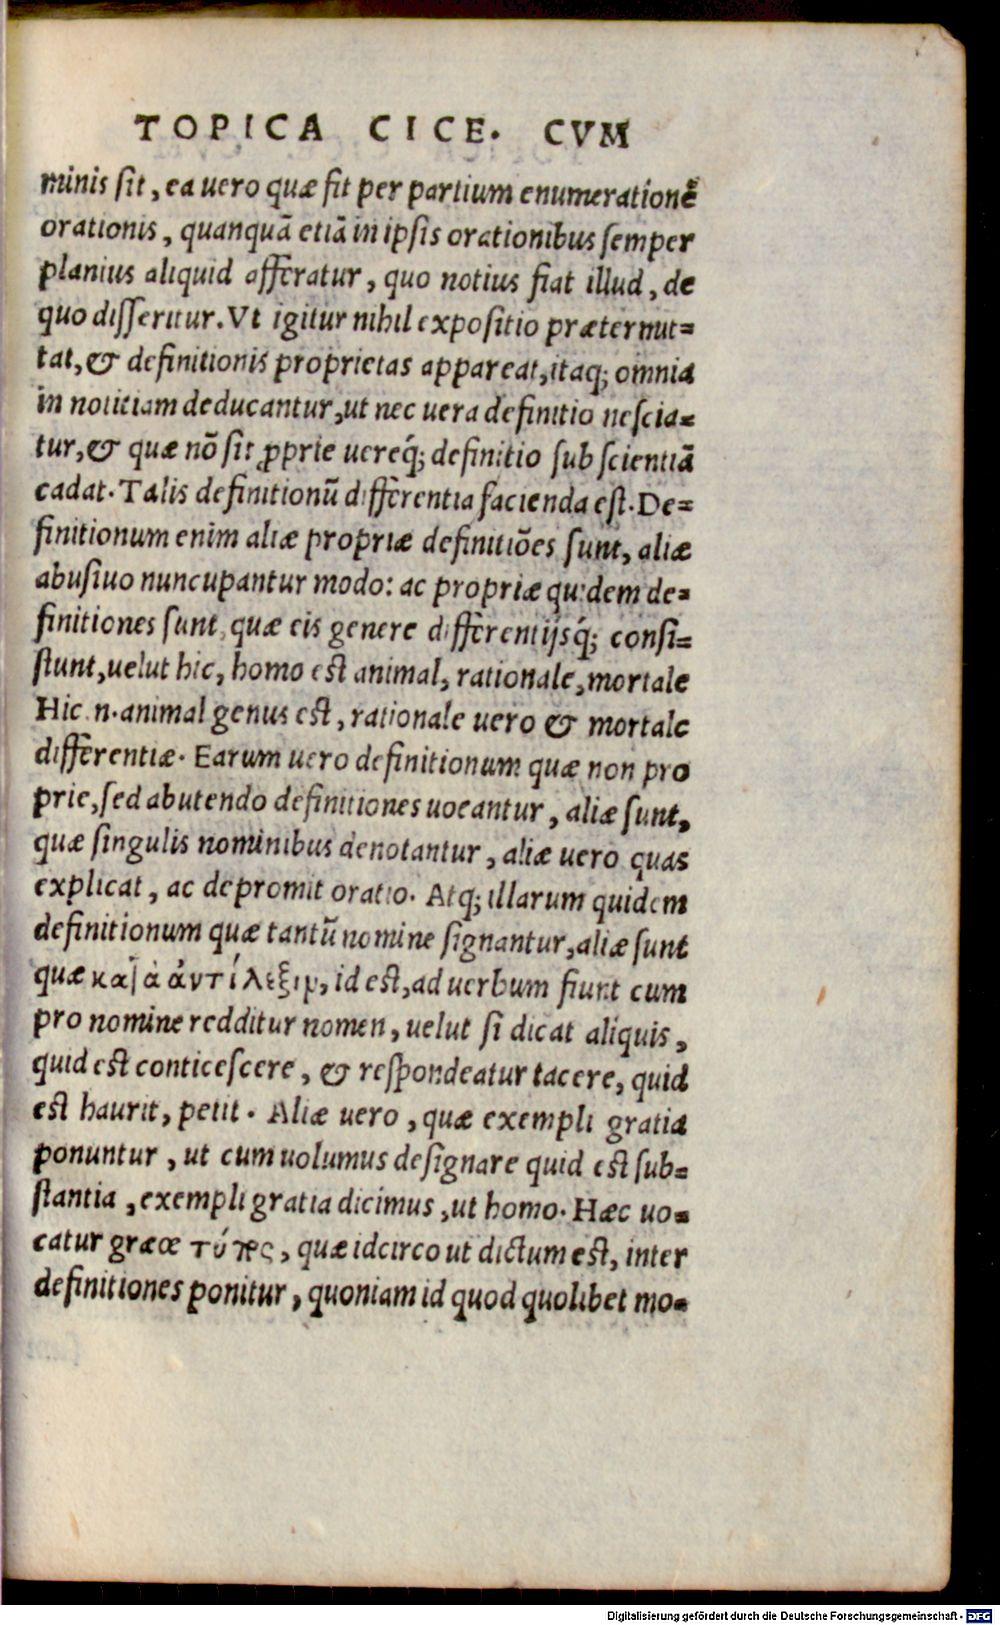 TOPICA CICE. CVM
minis sit, ea uero quæ fit per partium enumerationẽ
orationis, quanquã etiã in ipsis orationibus semper
planius aliquid afferatur, quo notius fiat illud, de
quo disseritur. Vt igitur nihil expositio prætermit=
tat, & definitionis proprietas appareat, itaq; omnia
in notitiam deducantur, ut nec uera definitio nescia=
tur, & quæ nõ sit ꝓprie uereq́; definitio sub scientiã
cadat. Talis definitionũ differentia facienda est. De=
finitionum enim aliæ propriæ definitiões sunt, aliæ
abusiuo nuncupantur modo: ac propriæ quidem de=
finitiones sunt, quæ eis genere differentijsq́; consi=
stunt, uelut hic, homo est animal, rationale, mortale
Hic .n. animal genus est, rationale uero & mortale
differentiæ. Earum uero definitionum quæ non pro
prie, sed abutendo definitiones uocantur, aliæ sunt,
quæ singulis nominibus denotantur, aliæ uero quas
explicat, ac depromit oratio. Atq; illarum quidem
definitionum quæ tantũ nomine signantur, aliæ sunt
quæ κατὰ ἀντίλεξιν, id est, ad uerbum fiunt cum
pro nomine redditur nomen, uelut si dicat aliquis,
quid est conticescere, & respondeatur tacere, quid
est haurit, petit. Aliæ uero, quæ exempli gratia
ponuntur, ut cum uolumus designare quid est sub=
stantia, exempli gratia dicimus, ut homo. Hæc uo=
catur græce τύπος, quæ idcirco ut dictum est, inter
definitiones ponitur, quoniam id quod quolibet mo=
Digitalisierung gefördert durch die Deutsche Forschungsgemeinschaft - DFG